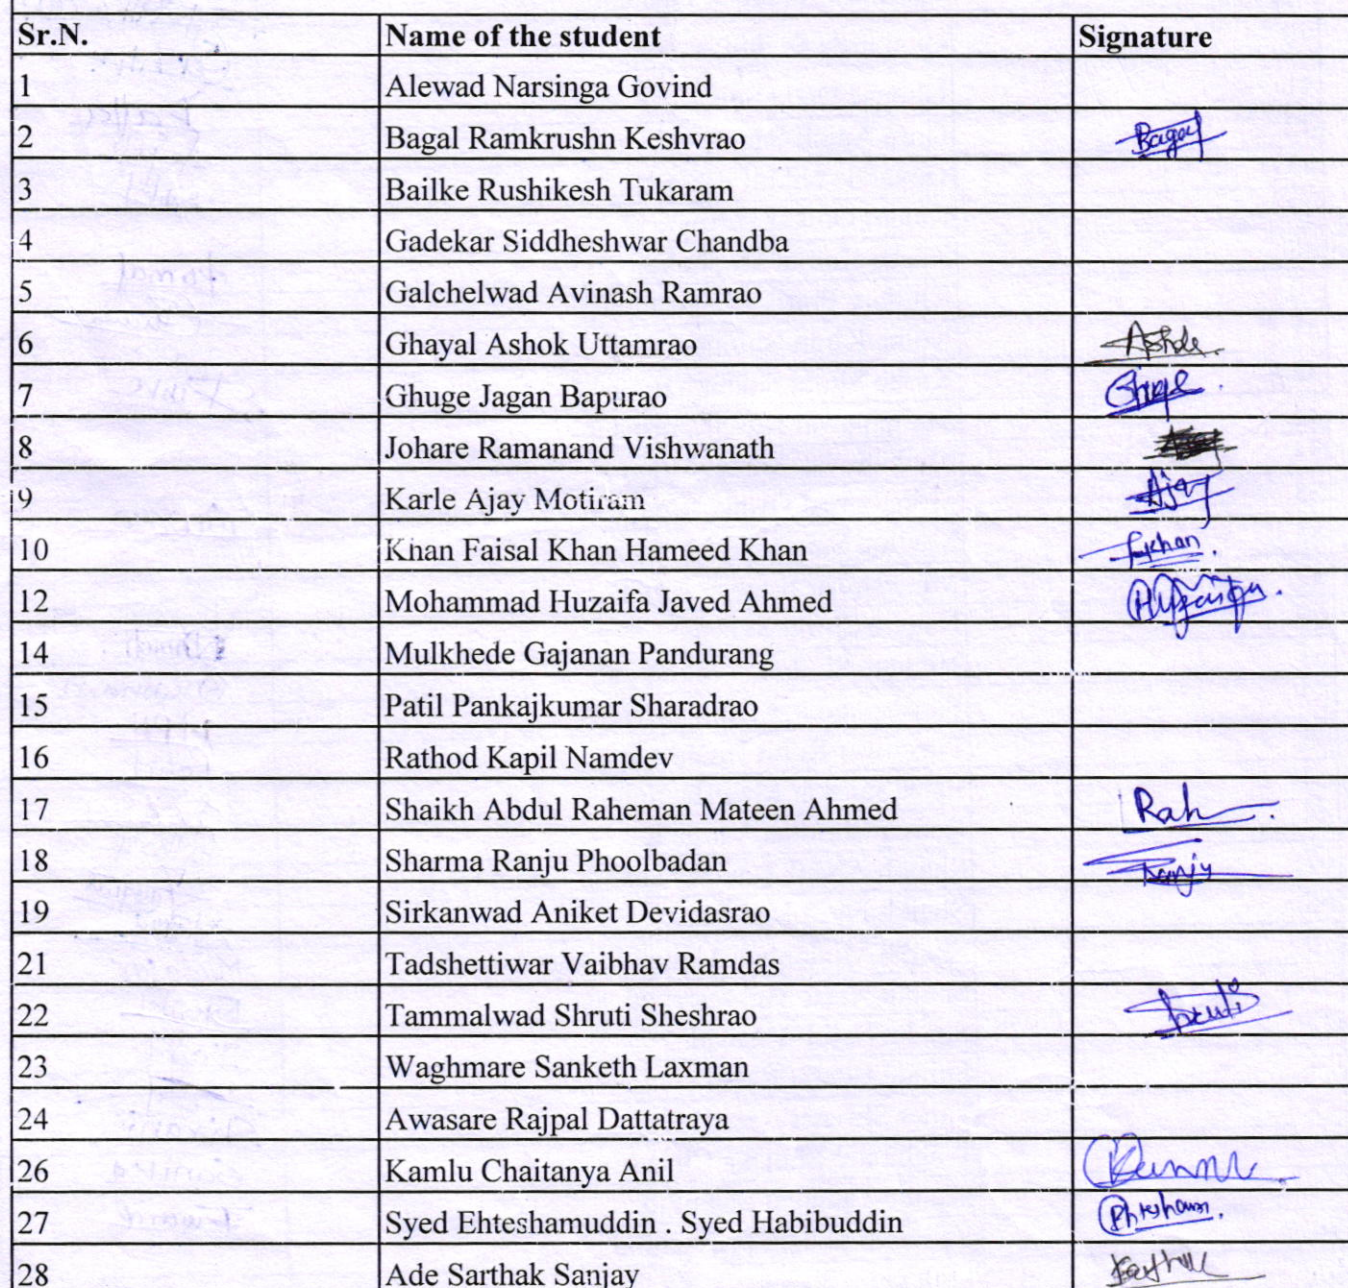 Sr.N. Name of the student Signature
1 Alewad Narsinga Govind
2 Bagal Ramkrushn Keshvrao Bagal
3 Bailke Rushikesh Tukaram
4 Gadekar Siddheshwar Chandba
5 Galchelwad Avinash Ramrao
6 Ghayal Ashok Uttamrao
7 Ghuge Jagan Bapurao Ghuge
8 Johare Ramanand Vishwanath
9 Karle Ajay Motiram Ajay
10 Khan Faisal Khan Hameed Khan
12 Mohammad Huzaifa Javed Ahmed
14 Mulkhede Gajanan Pandurang
15 Patil Pankajkumar Sharadrao
16 Rathod Kapil Namdev
17 Shaikh Abdul Raheman Mateen Ahmed Rah
18 Sharma Ranju Phoolbadan Ranju
19 Sirkanwad Aniket Devidasrao
21 Tadshettiwar Vaibhav Ramdas
22 Tammalwad Shruti Sheshrao
23 Waghmare Sanketh Laxman
24 Awasare Rajpal Dattatraya
26 Kamlu Chaitanya Anil
27 Syed Ehteshamuddin . Syed Habibuddin
28 Ade Sarthak Sanjay